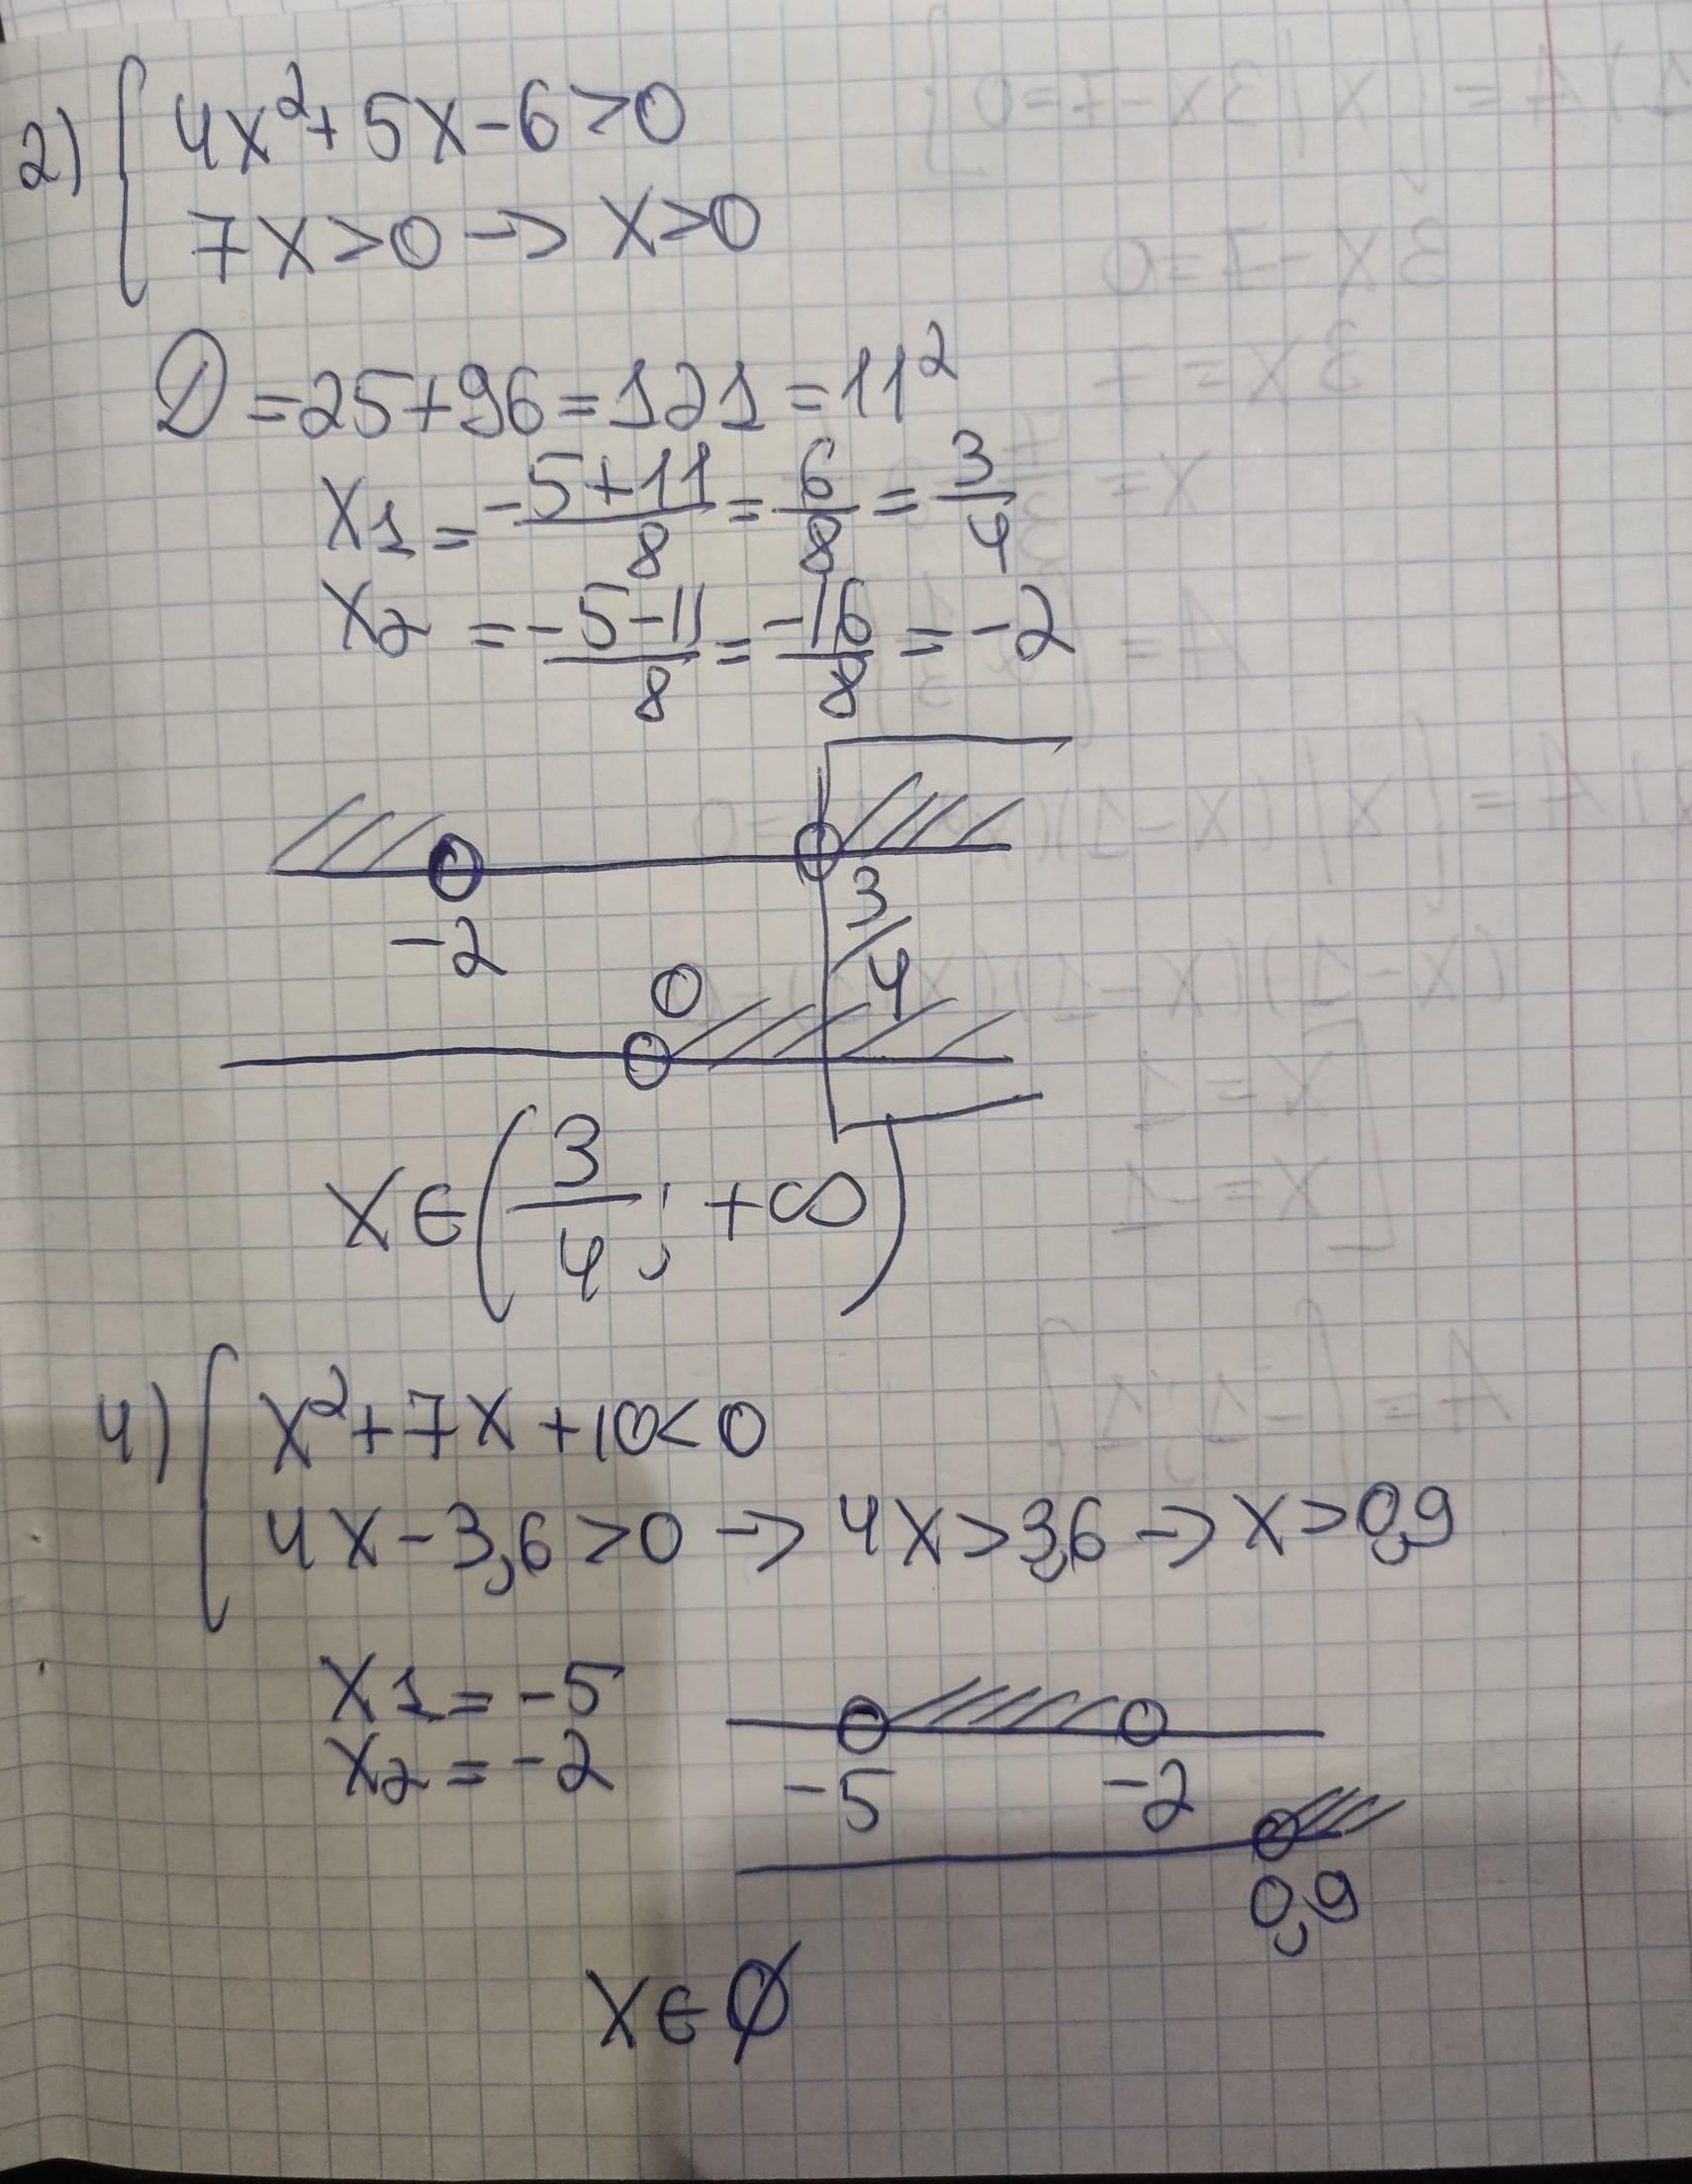 2) { 4x²+5x-6>0
7x>0 -> x>0
D=25+96=121=11²
x1=(-5+11)/8=6/8=3/4
x2=(-5-11)/8=-16/8=-2
-2 3/4
0
x∈(3/4; +∞)
4) { x²+7x+10<0
4x-3,6>0 -> 4x>3,6 -> x>0,9
x1=-5
x2=-2
-5 -2
0,9
x∈∅